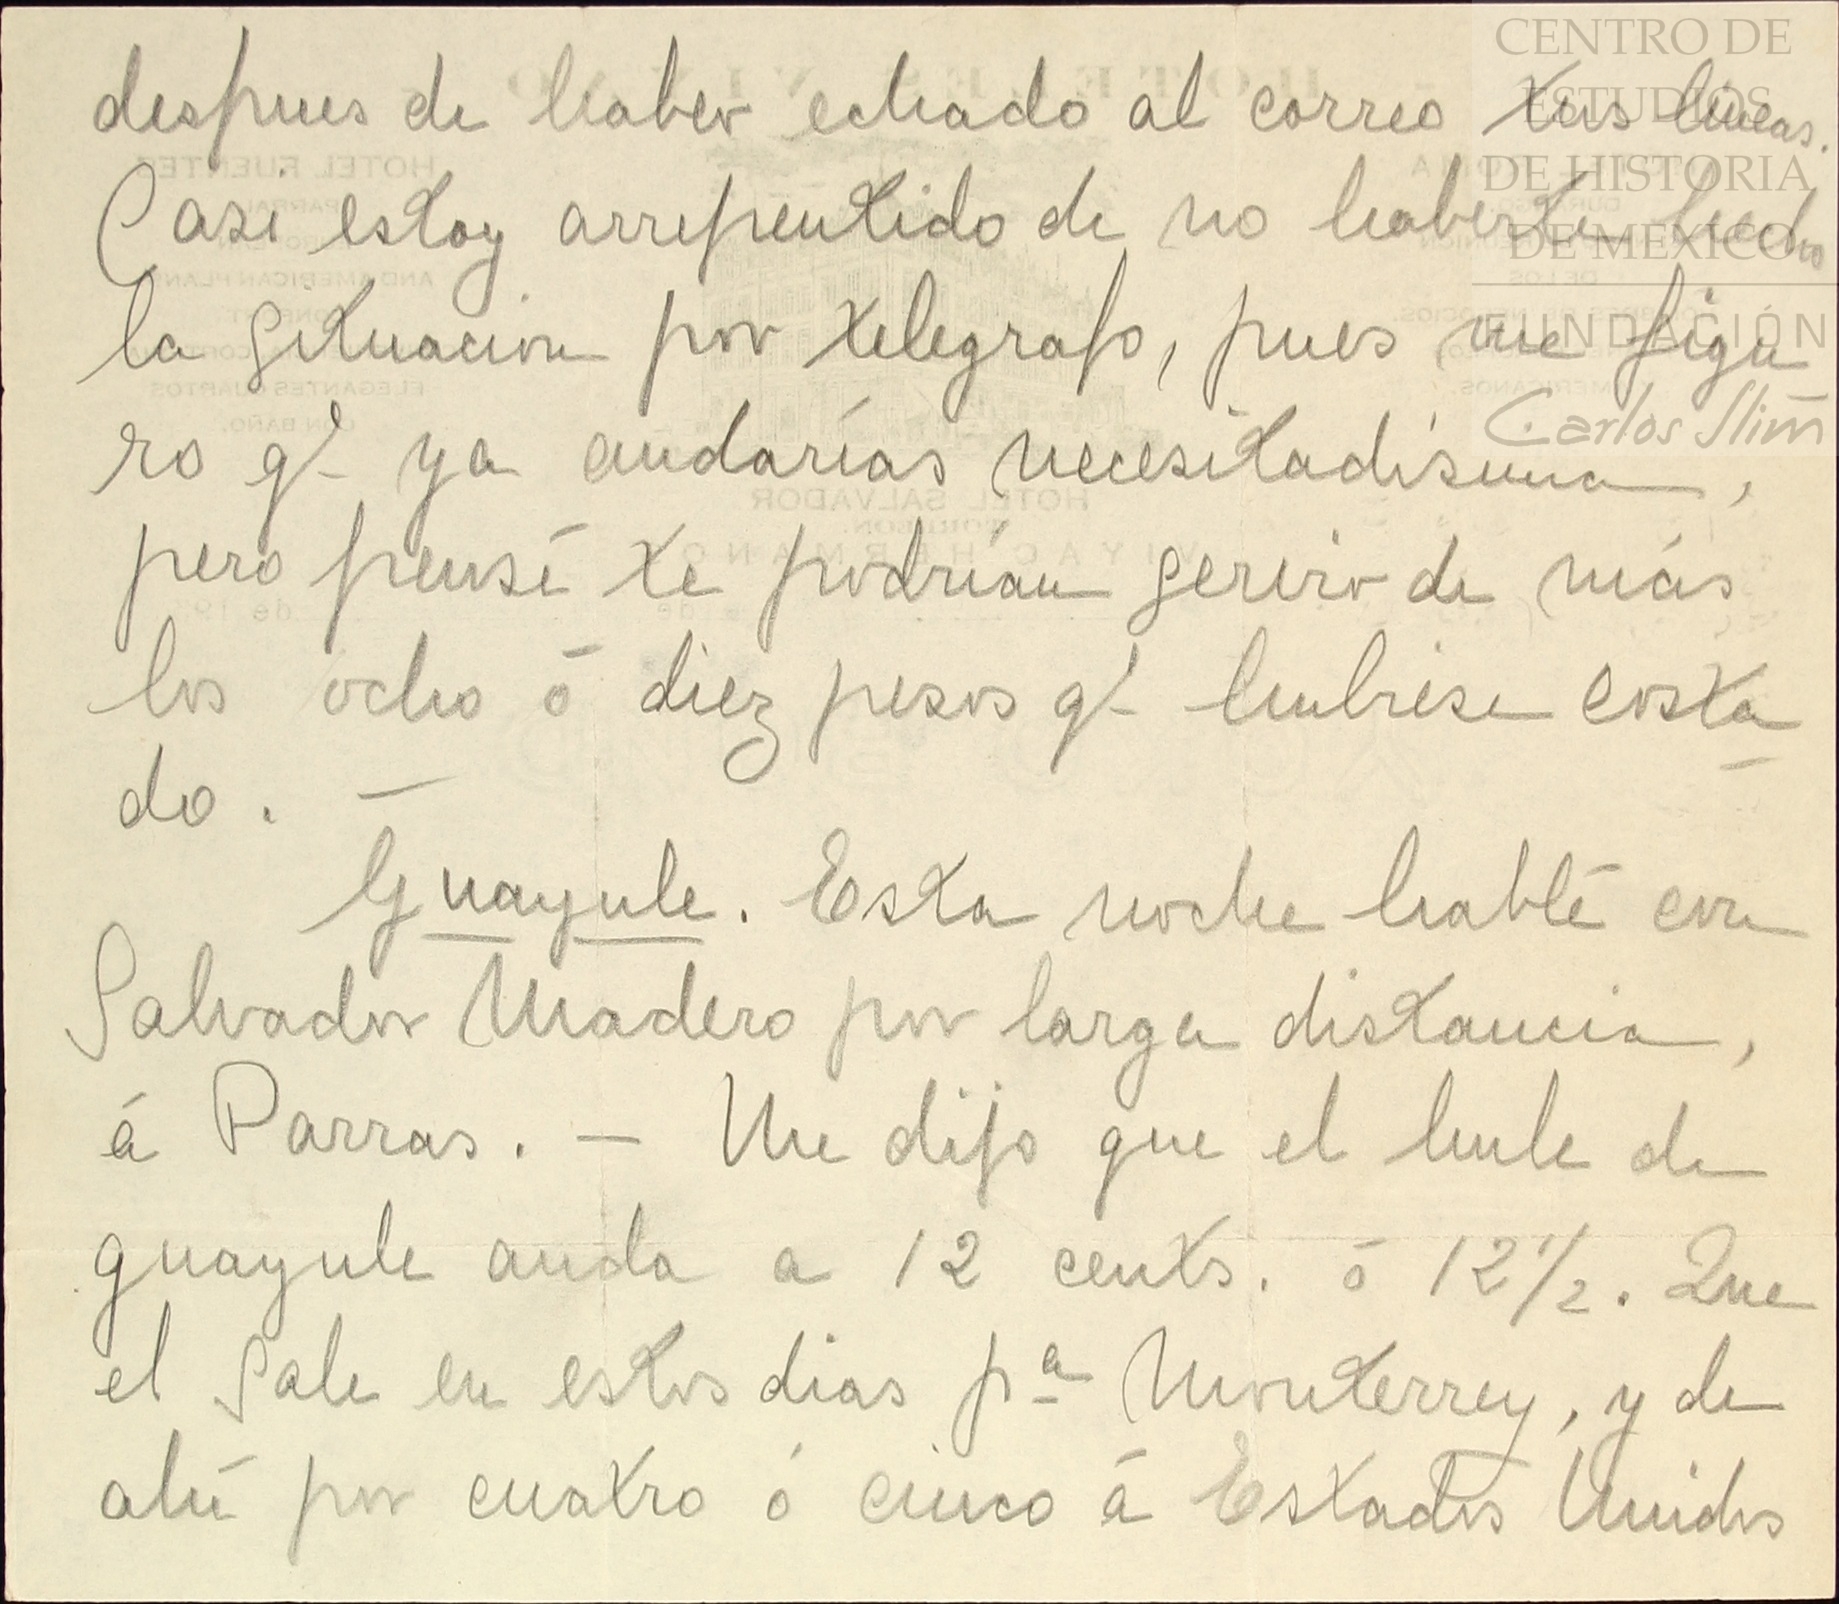 despues de haber echado al correo tus líneas.
Casi estoy arrepentido de no haberte hecho
la situacion por telegrafo, pues me figu
ro q'- ya andarías necesitadísima,
pero pensé te podrían servir de más
los ocho ó diez pesos q'- hubiese costa
do. —
Guayule. Esta noche hablé con
Salvador Madero por larga distancia,
á Parras. — Me dijo que el hule de
guayule anda a 12 cents. ó 12 1/2. Que
el sale en estos dias pª Monterrey, y de
ahí por cuatro ó cinco á Estados Unidos
CENTRO DE
ESTUDIOS
DE HISTORIA
DE MEXICO
FUNDACIÓN
Carlos Slim
HOTEL FUENTES
AND AMERICAN PLAN
ELEGANTES CUARTOS
CON BAÑO.
HOTEL SALVADOR
VIYAO HERMANO
de 19